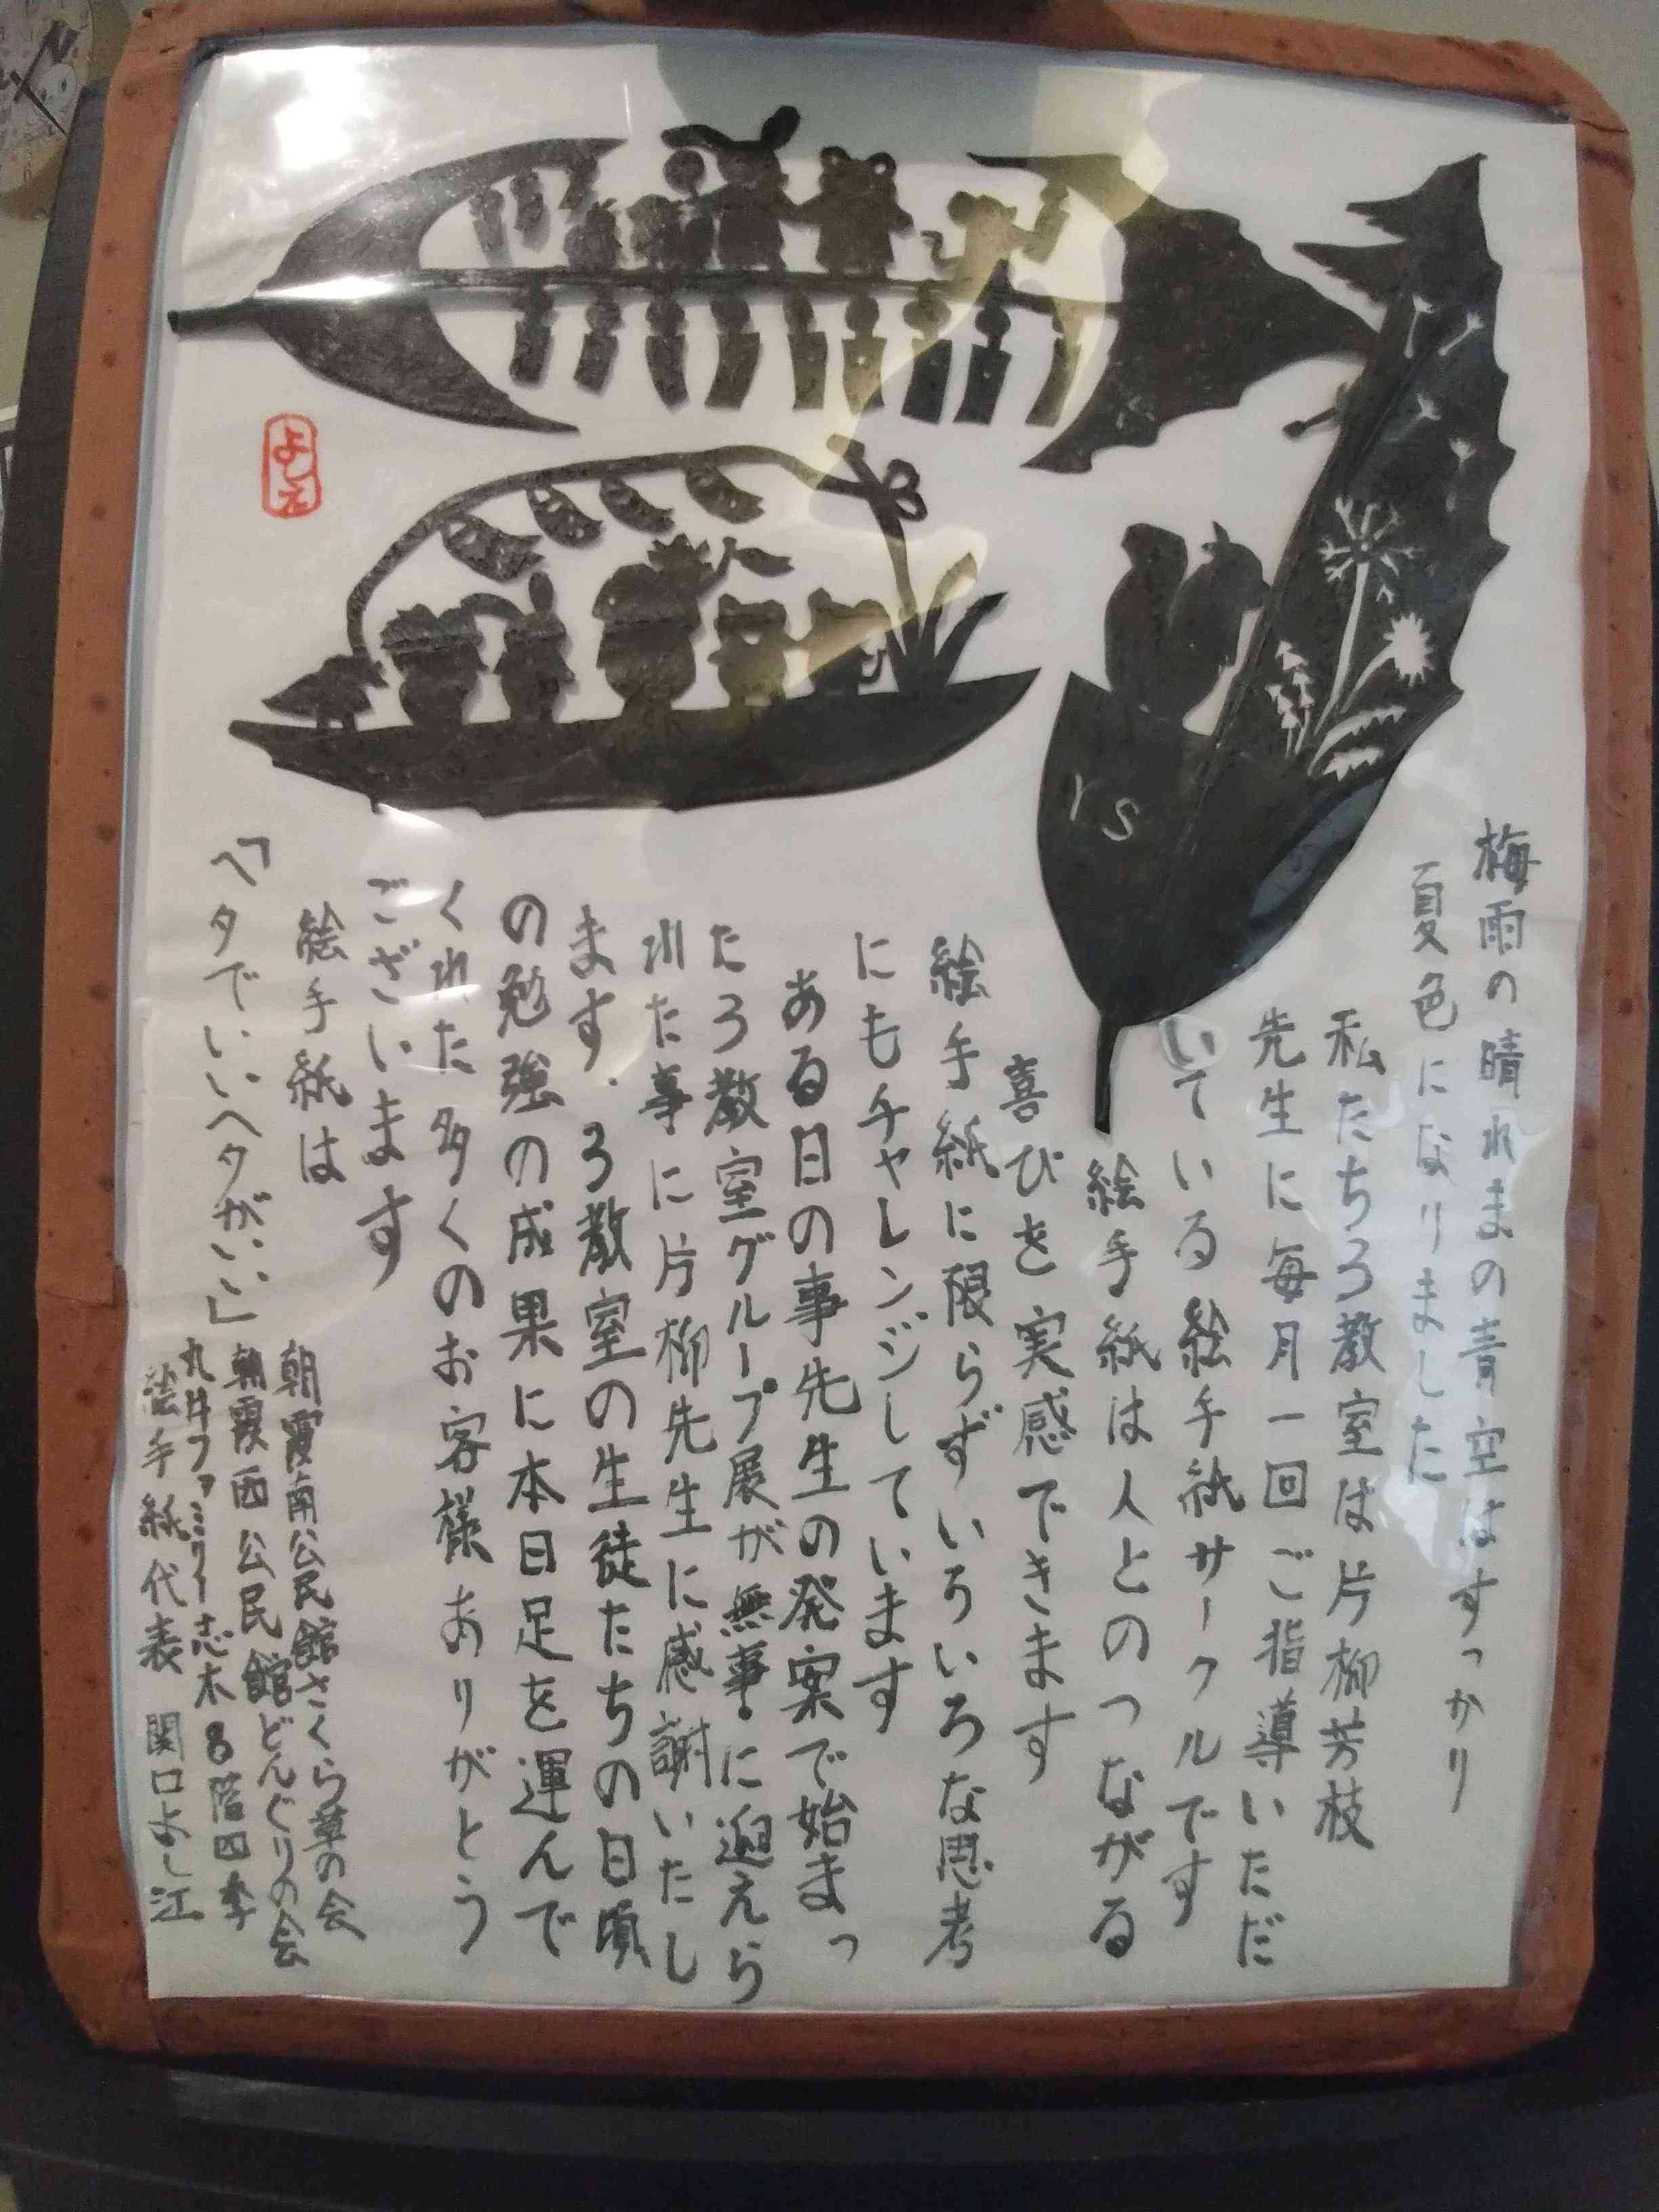 梅雨の晴れまの青空はすっかり
夏色になりました
私たち3教室は片柳芳枝
先生に毎月一回ご指導いただ
いている絵手紙サークルです
絵手紙は人とのつながる
喜びを実感できます
絵手紙に限らずいろいろな思考
にもチャレンジしています
ある日の事先生の発案で始まっ
た3教室グループ展が無事に迎えら
れた事に片柳先生に感謝いたし
ます。3教室の生徒たちの日頃
の勉強の成果に本日足を運んで
くれた多くのお客様ありがとう
ございます
絵手紙は
「ヘタでいいヘタがいい」
朝霞南公民館さくら草の会
朝霞西公民館どんぐりの会
丸井ファミリー志木8階四季
絵手紙代表 関口よし江
よしえ
YS